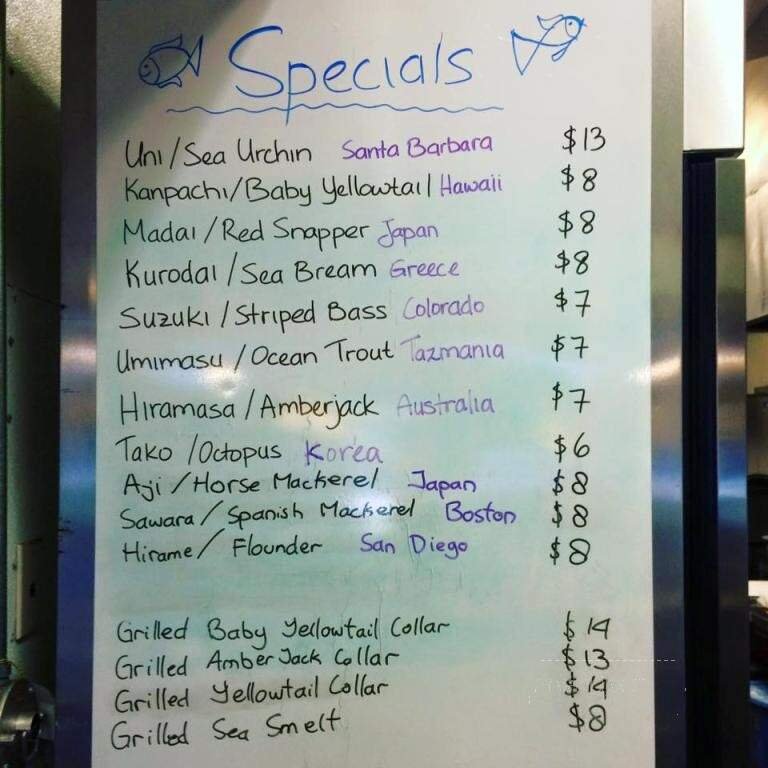 Specials
Uni/Sea Urchin Santa Barbara $13
Kanpachi/Baby Yellowtail Hawaii $8
Madai/Red Snapper Japan $8
Kurodai/Sea Bream Greece $8
Suzuki/Striped Bass Colorado $7
Umimasu/Ocean Trout Tazmania $7
Hiramasa/Amberjack Australia $7
Tako/Octopus Korea $6
Aji/Horse Mackerel Japan $8
Sawara/Spanish Mackerel Boston $8
Hirame/Flounder San Diego $8
Grilled Baby Yellowtail Collar $14
Grilled Amber Jack Collar $13
Grilled Yellowtail Collar $14
Grilled Sea Smelt $8